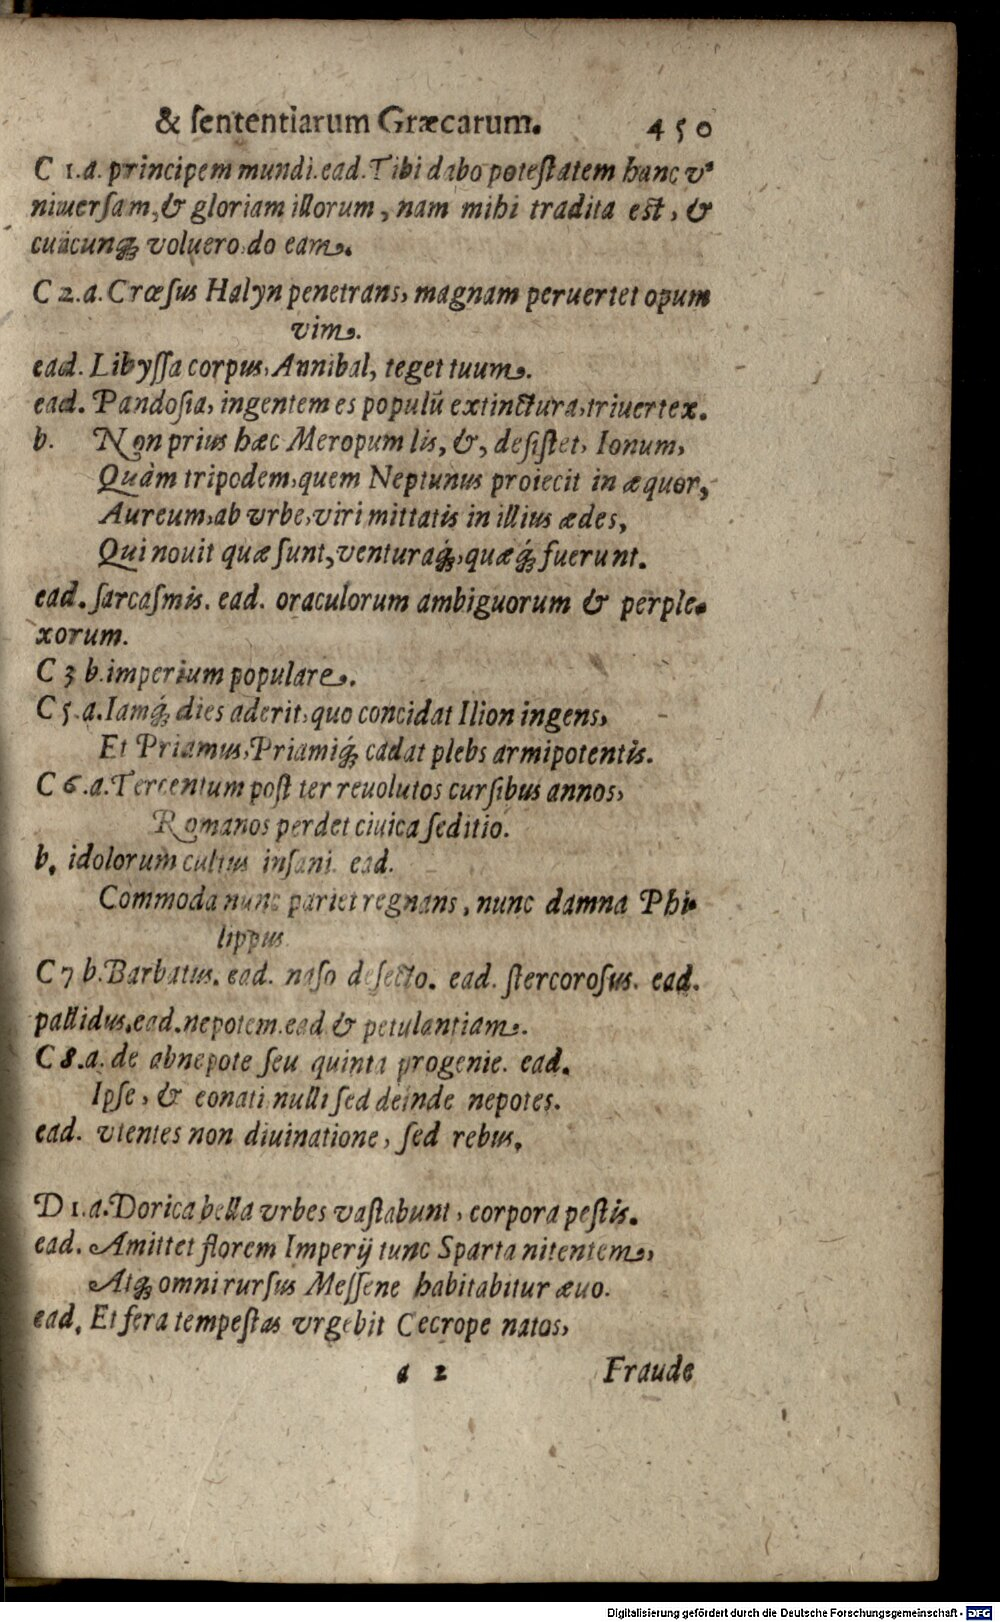 & ſententiarum Græcarum. 450
C 1.a. principem mundi. ead. Tibi dabo poteſtatem hanc v-
niuerſam, & gloriam illorum, nam mihi tradita est, &
cuicunq́ꝫ voluero do eam.
C 2.a. Crœſus Halyn penetrans, magnam peruertet opum
vim.
ead. Libyſſa corpus, Annibal, teget tuum.
ead. Pandoſia, ingentem es populū extinctura, triuertex.
b. Non prius hæc Meropum lis, &, deſiſtet, Ionum,
Quàm tripodem, quem Neptunus proiecit in æquor,
Aureum, ab vrbe, viri mittatis in illius ædes,
Qui nouit quæ ſunt, venturaq́ꝫ, quæq́ꝫ fuerunt.
ead. ſarcaſmis. ead. oraculorum ambiguorum & perple-
xorum.
C 3 b. imperium populare.
C 5.a. Iamq́ꝫ dies aderit, quo concidat Ilion ingens,
Et Priamus, Priamiq́ꝫ cadat plebs armipotentis.
C 6.a. Tercentum poſt ter reuolutos curſibus annos,
Romanos perdet ciuica ſeditio.
b. idolorum cultus inſani. ead.
Commoda nunc pariet regnans, nunc damna Phi-
lippus.
C 7 b. Barbatus. ead. naſo deſecto. ead. ſtercoroſus. ead.
pallidus. ead. nepotem. ead & petulantiam.
C 8.a. de abnepote ſeu quinta progenie. ead.
Ipſe, & eonati nulli ſed deinde nepotes.
ead. vtentes non diuinatione, ſed rebus.
D 1.a. Dorica bella vrbes vaſtabunt, corpora peſtis.
ead. Amittet florem Imperij tunc Sparta nitentem,
Atqꝫ omni rurſus Meſſene habitabitur æuo.
ead. Et fera tempeſtas vrgebit Cecrope natos,
a 2 Fraude
Digitalisierung gefördert durch die Deutsche Forschungsgemeinschaft - DFG